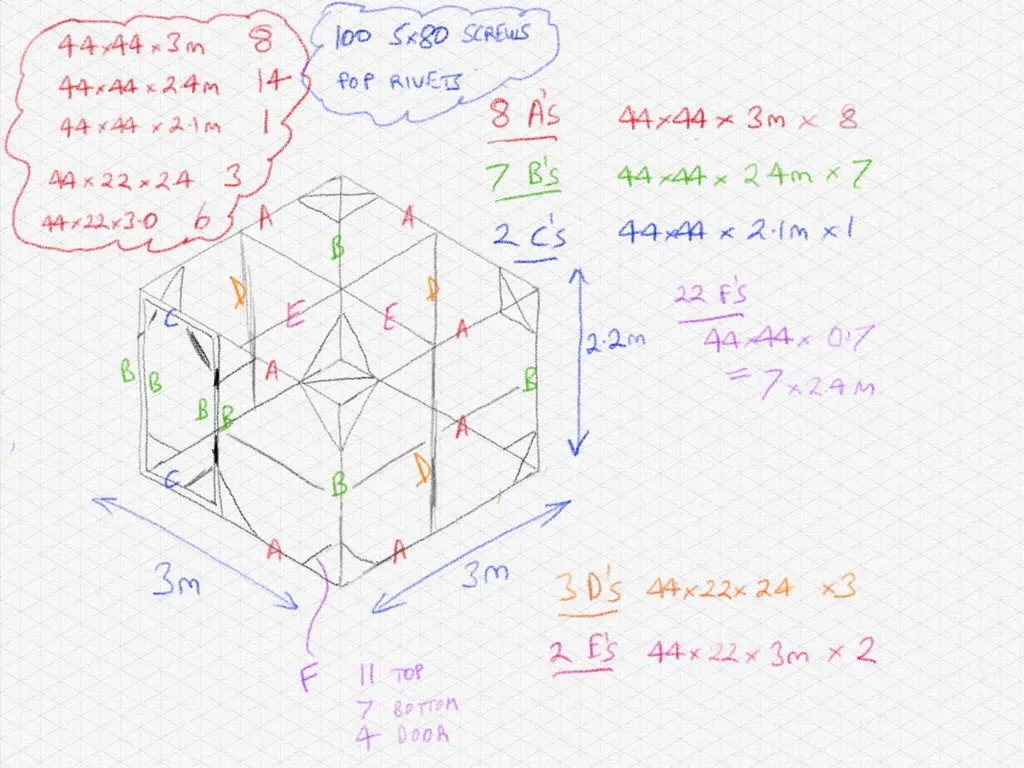 44×44×3m 8
44×44×2.4m 14
44×44×2.1m 1
44×22×24 3
44×22×3.0 6
100 5×80 SCREWS
POP RIVETS
8 A's 44×44×3m×8
7 B's 44×44×24m×7
2 C's 44×44×2.1m×1
22 F's
44×44×0.7
=7×2.4m
A
A
B
D
D
C
E
E
A
2.2m
B
B
A
B
B
B
A
D
C
B
A
A
3m
3m
3 D's 44×22×24 ×3
2 E's 44×22×3m×2
F
11 TOP
7 BOTTOM
4 DOOR